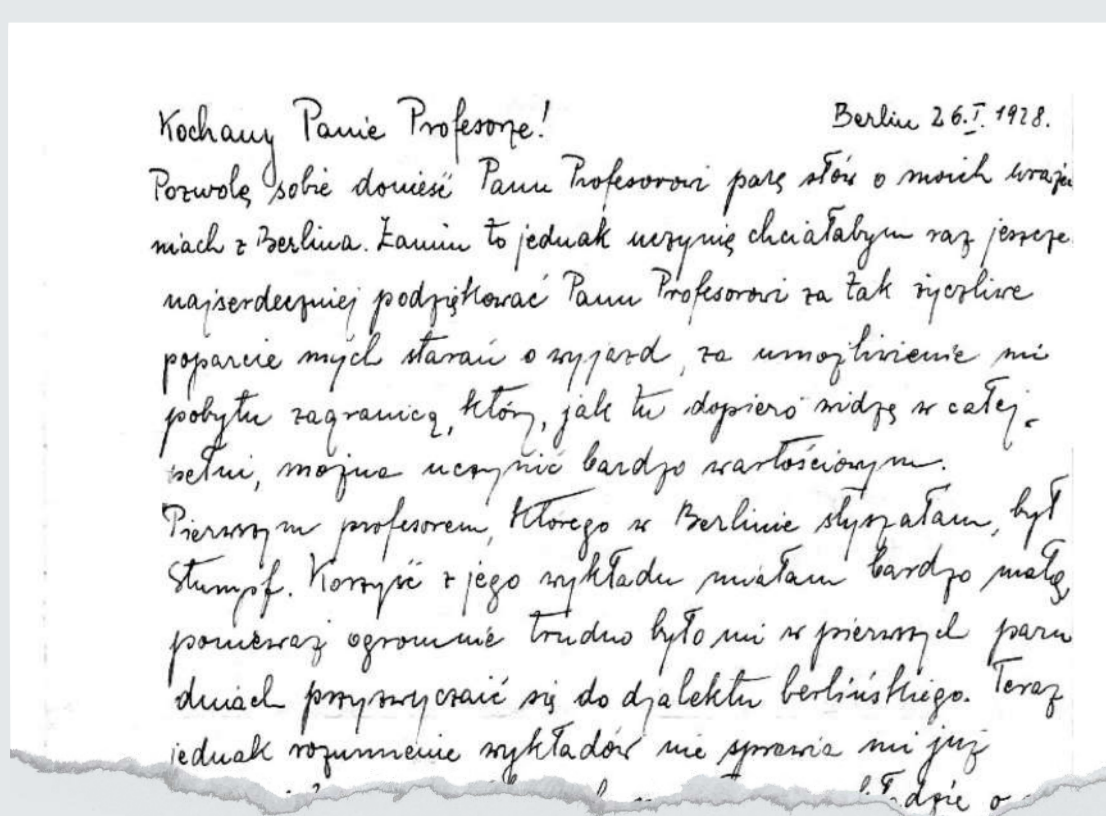 Kochany Panie Profesorze!
Berlin 26.I.1928.
Pozwolę sobie donieść Panu Profesorowi parę słów o moich wraże
niach z Berlina. Zanim to jednak uczynię chciałabym raz jeszcze
najserdeczniej podziękować Panu Profesorowi za tak życzliwe
poparcie mych starań o wyjazd, za umożliwienie mi
pobytu zagranicą, który, jak tu dopiero widzę w całej
pełni, można uczynić bardzo wartościowym.
Pierwszym profesorem, którego w Berlinie słyszałam, był
Stumpf. Korzyść z jego wykładu miałam bardzo małą,
ponieważ ogromnie trudno było mi w pierwszych paru
dniach przyzwyczaić się do djalektu berlińskiego. Teraz
jednak rozumienie wykładów nie sprawia mi już